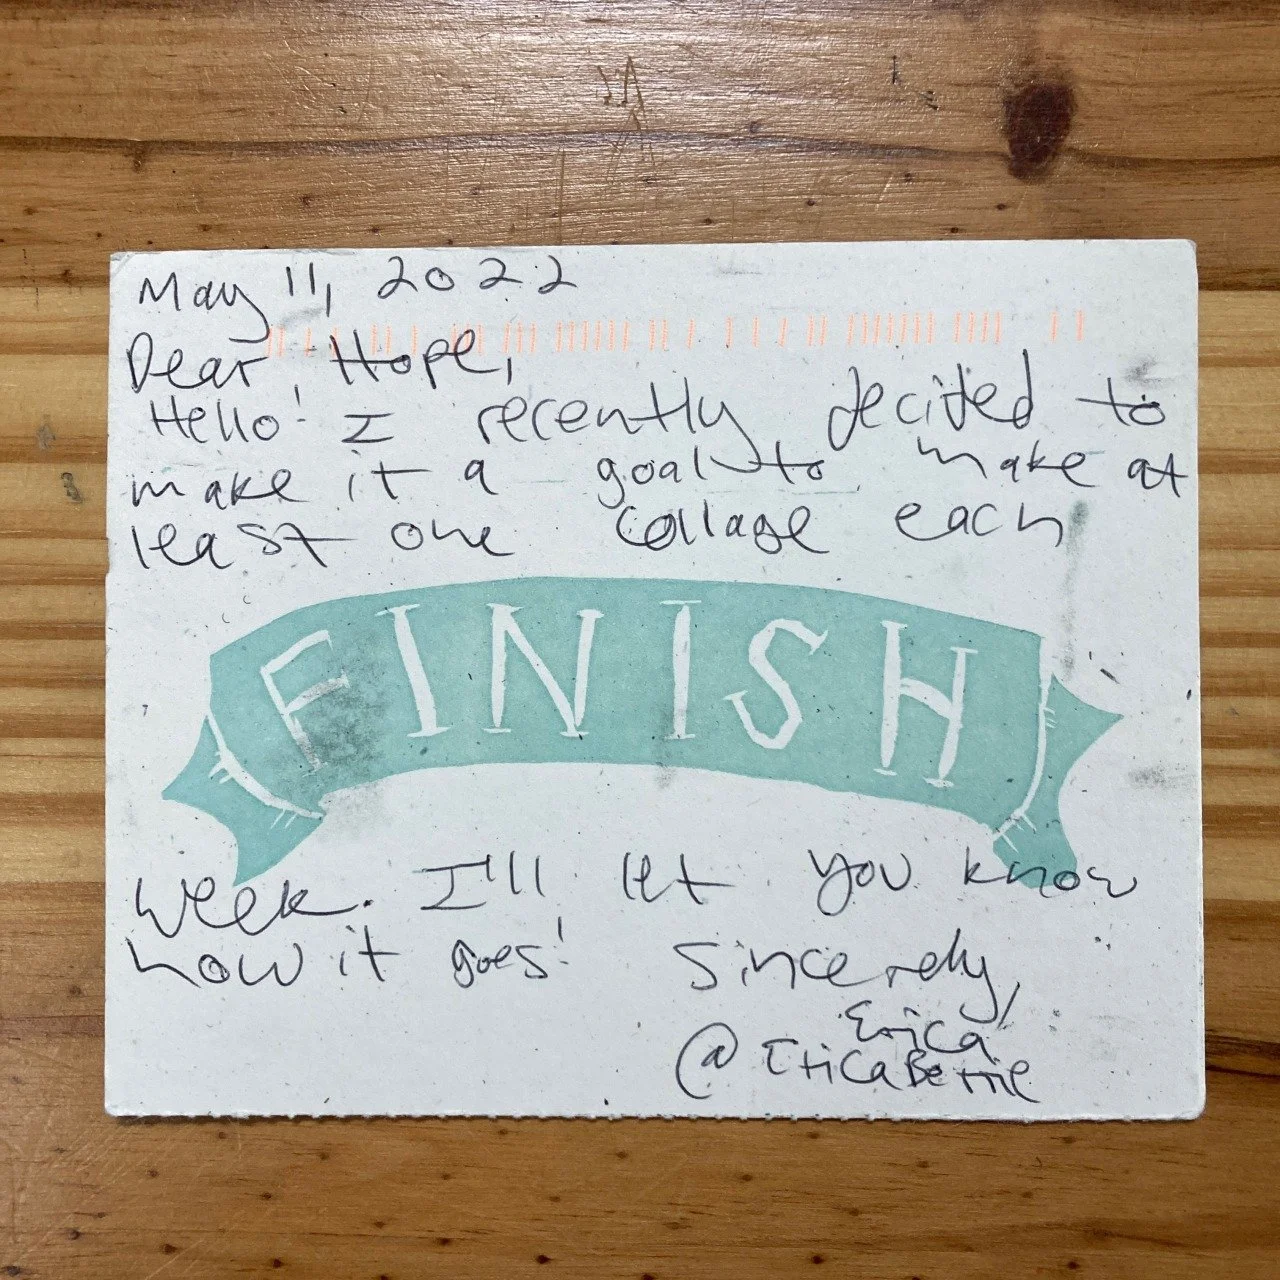 May 11, 2022
Dear Hope,
Hello! I recently decided to
make it a goal to make at
least one collage each
FINISH
week. I'll let you know
how it goes! Sincerely,
Erica
@EricaBettie